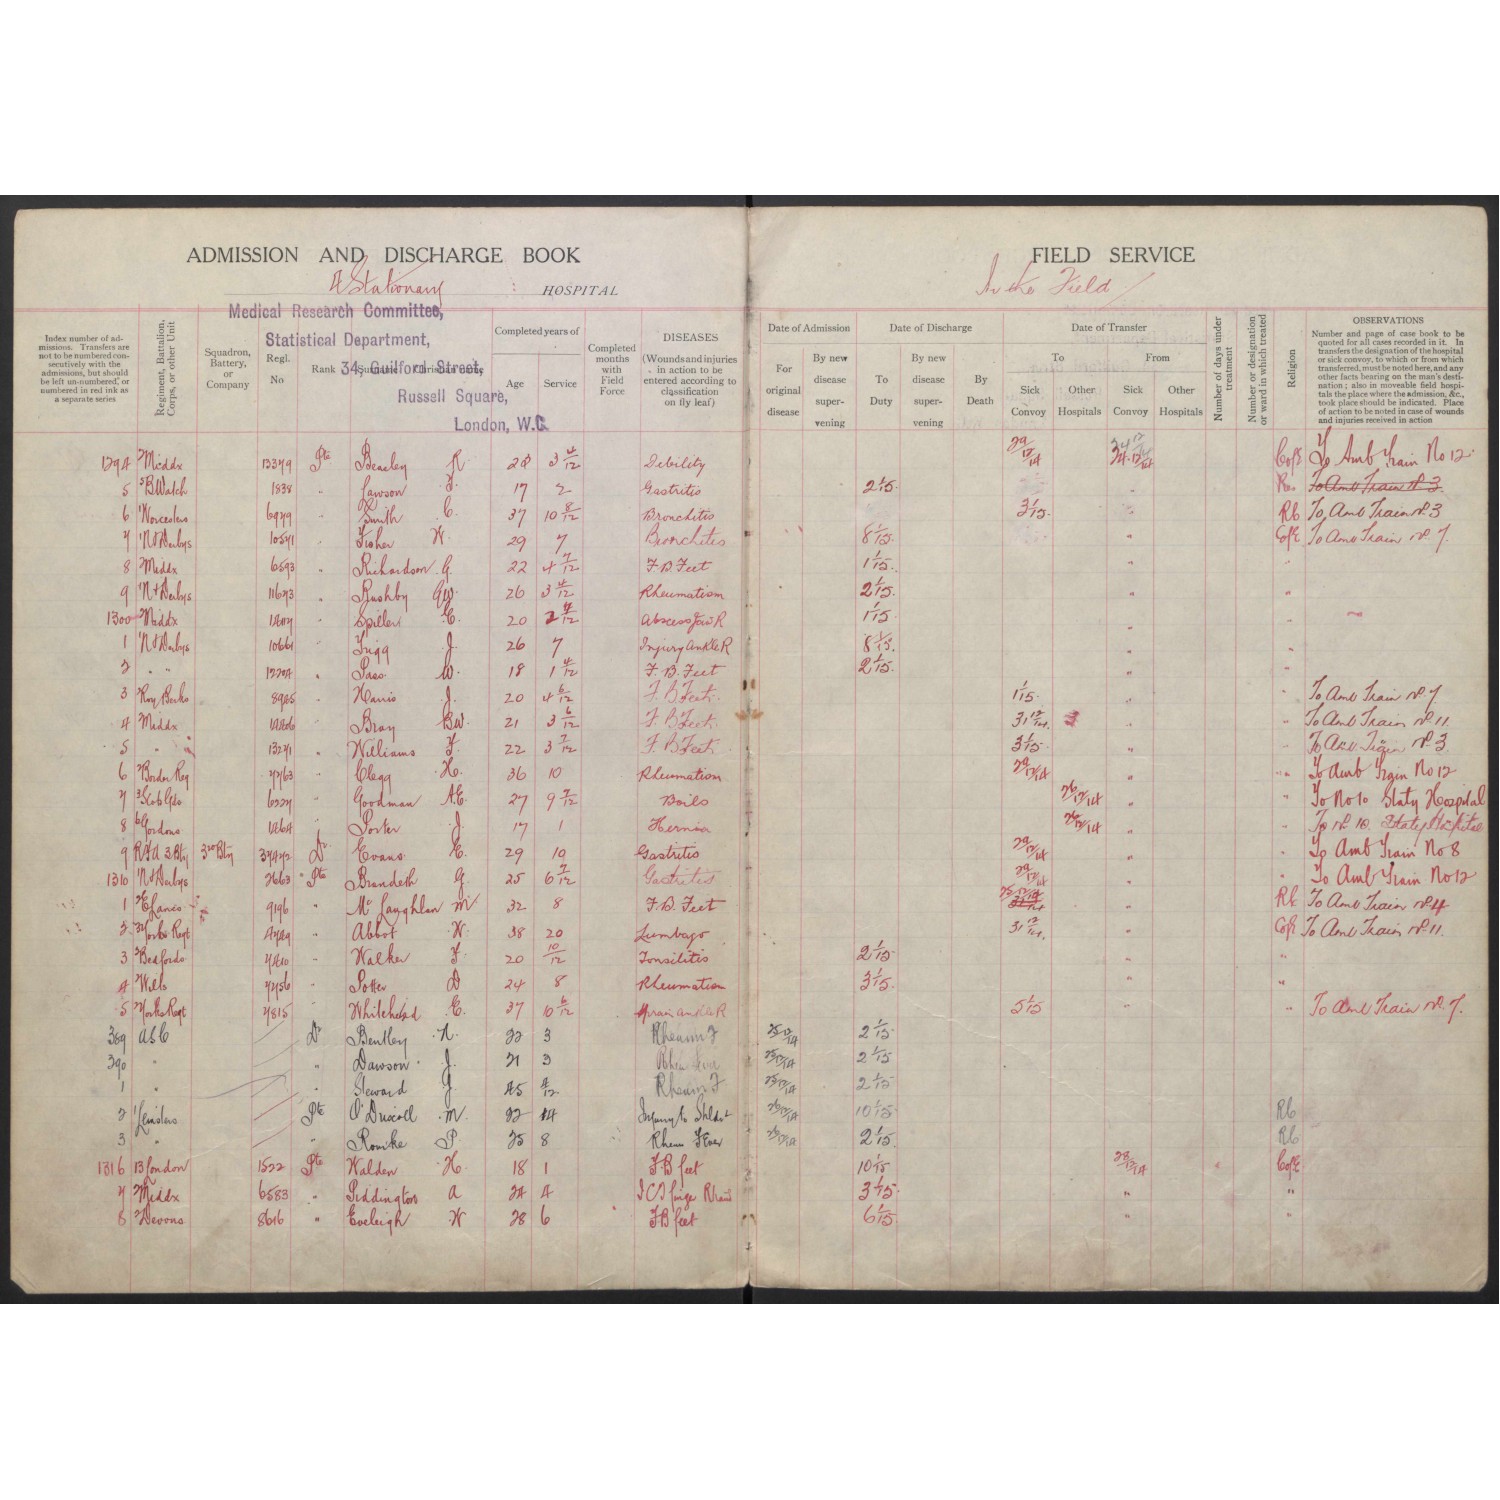 ADMISSION AND DISCHARGE BOOK
FIELD SERVICE
4 Stationary HOSPITAL
In the Field
Medical Research Committee,
Statistical Department,
34, Guilford Street,
Russell Square,
London, W.C.
Index number of admissions. Transfers are not to be numbered consecutively with the admissions, but should be left un-numbered, or numbered in red ink as a separate series
Regiment, Battalion, Corps, or other Unit
Squadron, Battery, or Company
Regl. No
Rank
Surname
Christian Name
Completed years of
Age
Service
Completed months with Field Force
DISEASES
(Wounds and injuries in action to be entered according to classification on fly leaf)
Date of Admission
For original disease
By new disease supervening
Date of Discharge
To Duty
By new disease supervening
By Death
Date of Transfer
To
Sick Convoy
Other Hospitals
From
Sick Convoy
Other Hospitals
Number of days under treatment
Number or designation or ward in which treated
Religion
OBSERVATIONS
Number and page of case book to be quoted for all cases recorded in it. In transfers the designation of the hospital or sick convoy, to which or from which transferred, must be noted here, and any other facts bearing on the man's destination; also in moveable field hospitals the place where the admission, &c., took place should be indicated. Place of action to be noted in case of wounds and injuries received in action
1294 Middx 13379 Pte R 28 3 4/12 Debility 29/12/14 C of E To Amb Train No 12
5 B Watch 1838 " Lawson F. 17 2 Gastritis 2/1/15 " To Amb Train No. 3
6 Worcesters 6979 " Smith C. 37 10 8/12 Bronchitis 3/1/15 " RC To Amb Train No. 3
7 N & Derbys 10571 " Fisher W. 29 7 Bronchitis 8/1/15 " C of E To Amb Train No. 7.
8 Middx 6593 " Richardson G. 22 4 7/12 F.B. Feet 1/1/15 " "
9 N & Derbys 11673 " Rushby GW. 26 3 4/12 Rheumatism 2/1/15 " "
1300 Middx " Spiller C. 20 2 Abscess Jaw R 1/1/15 " "
1 N & Derbys 10661 " J. 26 7 Injury Ankle R 8/1/15. " "
2 " " " W. 18 1 4/12 F.B. Feet 2/1/15 " "
3 Roy Berks 8985 " Harris J. 20 4 6/12 F.B Feet 1/1/15. " " To Amb Train No. 7
4 Middx " Bray BW. 21 3 6/12 F.B Feet 31/12/14 " " To Amb Train No. 11.
5 " 13271 " Williams F. 22 3 7/12 F.B Feet 3/1/15 " " To Amb Train No. 3
6 Border Reg 7763 " Clegg H. 36 10 Rheumatism 29/12/14 " " To Amb Train No 12
7 Scots Gds 6227 " Goodman A.E. 27 9 7/12 Boils 26/12/14 " " To No 10 Staty Hospital
8 Gordons " Porter J. 17 1 Hernia 26/12/14 " " To No. 10. Staty Hospital
9 RFA 3 Bty 3rd Bty 37442 Dr. Evans E. 29 10 Gastritis 29/12/14 " " To Amb Train No 8
1310 N & Derbys 7663 Pte Brandeth G. 25 6 7/12 Gastritis 29/12/14 " " To Amb Train No 12
1 E Lancs 9196 " McLaughlan M 32 8 F.B. Feet 25/12/14 " RC To Amb Train No 4
2 Yorks Regt " Abbot W. 38 20 Lumbago 31/12/14. " C of E To Amb Train No. 11.
3 Bedfords " Walker F. 20 10/12 Tonsilitis 2/1/15 " "
4 Wilts 7756 " Potter D 24 8 Rheumatism 3/1/15. " "
5 Yorks Regt 7815 " Whitehead E. 37 10 6/12 Sprain Ankle R 5/1/15 " " To Amb Train No. 7.
389 ASC Dr Bentley 22 3 Rheum F 25/12/14 2/1/15
390 " " Dawson J. 21 3 Rheu Fever 25/12/14 2/1/15
1 " " Steward J. 45 4/12 Rheum F 25/12/14 2/1/15
2 Leinsters Pte O'Driscoll M. 22 14 Injury to Shldr L 26/12/14 10/1/15 RC
3 " " Rourke P 25 8 Rheum Fever 26/12/14 2/1/15 RC
1316 13 London 1522 Pte Walden H. 18 1 F.B feet 10/1/15 28/12/14 C of E
7 Middx 6583 " Piddington A 24 4 3/1/15 " "
8 Devons 8616 " Eveleigh W 28 6 F.B feet 6/1/15 " "